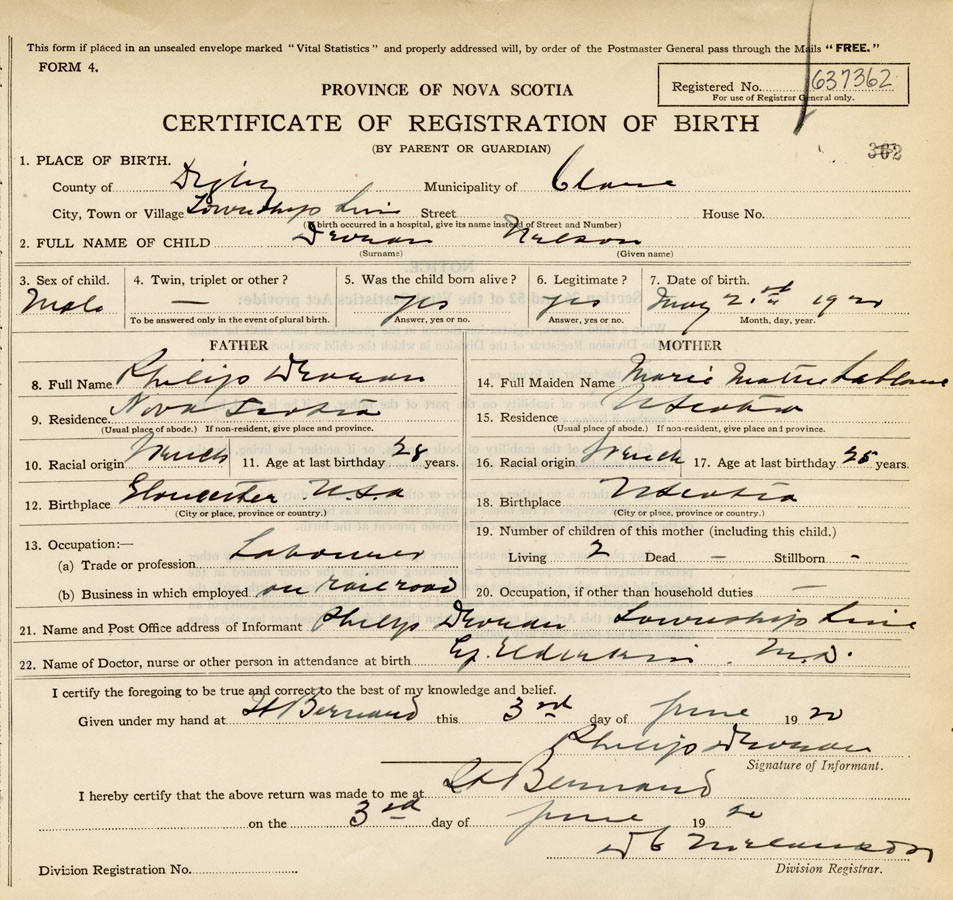 This form if placed in an unsealed envelope marked "Vital Statistics" and properly addressed will, by order of the Postmaster General pass through the Mails "FREE."
FORM 4.
Registered No. 637362
For use of Registrar General only.
PROVINCE OF NOVA SCOTIA
CERTIFICATE OF REGISTRATION OF BIRTH
(BY PARENT OR GUARDIAN)
362
1. PLACE OF BIRTH.
County of Digby Municipality of Clare
City, Town or Village Township Line Street House No.
(If birth occurred in a hospital, give its name instead of Street and Number)
2. FULL NAME OF CHILD Nelson
(Surname) (Given name)
3. Sex of child. 4. Twin, triplet or other? 5. Was the child born alive? 6. Legitimate? 7. Date of birth.
Male — Yes Yes May
To be answered only in the event of plural birth. Answer, yes or no. Answer, yes or no. Month, day, year.
FATHER MOTHER
8. Full Name Philip
14. Full Maiden Name Marie
9. Residence Nova Scotia
15. Residence N Scotia
(Usual place of abode.) If non-resident, give place and province. (Usual place of abode.) If non-resident, give place and province.
10. Racial origin French 11. Age at last birthday 28 years.
16. Racial origin French 17. Age at last birthday 25 years.
12. Birthplace Gloucester U.S.a
(City or place, province or country.)
18. Birthplace N Scotia
(City or place, province or country.)
13. Occupation:—
19. Number of children of this mother (including this child.)
(a) Trade or profession Labourer
Living 2 Dead — Stillborn -
(b) Business in which employed on railroad
20. Occupation, if other than household duties —
21. Name and Post Office address of Informant Philip Township Line
22. Name of Doctor, nurse or other person in attendance at birth M.D.
I certify the foregoing to be true and correct to the best of my knowledge and belief.
Given under my hand at St Bernard this 3rd day of June 19 20
Philip
Signature of Informant.
I hereby certify that the above return was made to me at St Bernard
on the 3rd day of June 19 20
Division Registration No. Division Registrar.